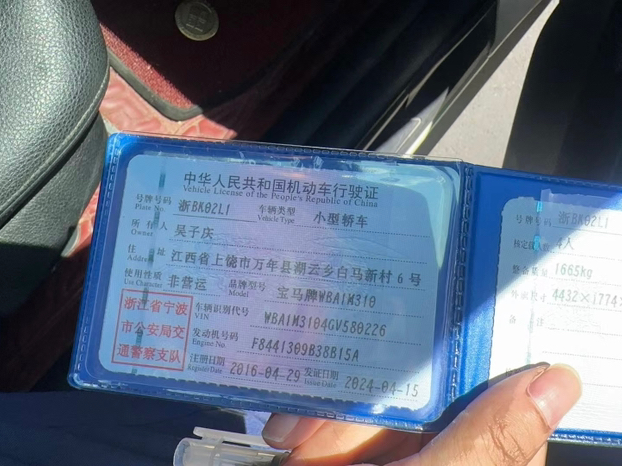 中华人民共和国机动车行驶证
Vehicle License of the People's Republic of China
号牌号码 浙BK02L1 车辆类型 小型轿车
Plate No. Vehicle Type
所有人 吴子庆
Owner
住址 江西省上饶市万年县湖云乡白马新村6号
Address
使用性质 非营运 品牌型号 宝马牌WBA1M310
Use Character Model
浙江省宁波
市公安局交
通警察支队
车辆识别代号 WBA1M3104GV580226
VIN
发动机号码 F8441309B38B15A
Engine No.
注册日期 2016-04-29 发证日期 2024-04-15
Register Date Issue Date
号牌号码 浙BK02L1
核定载人数 人
整备质量 1665kg
外廓尺寸 4432×1774
备注